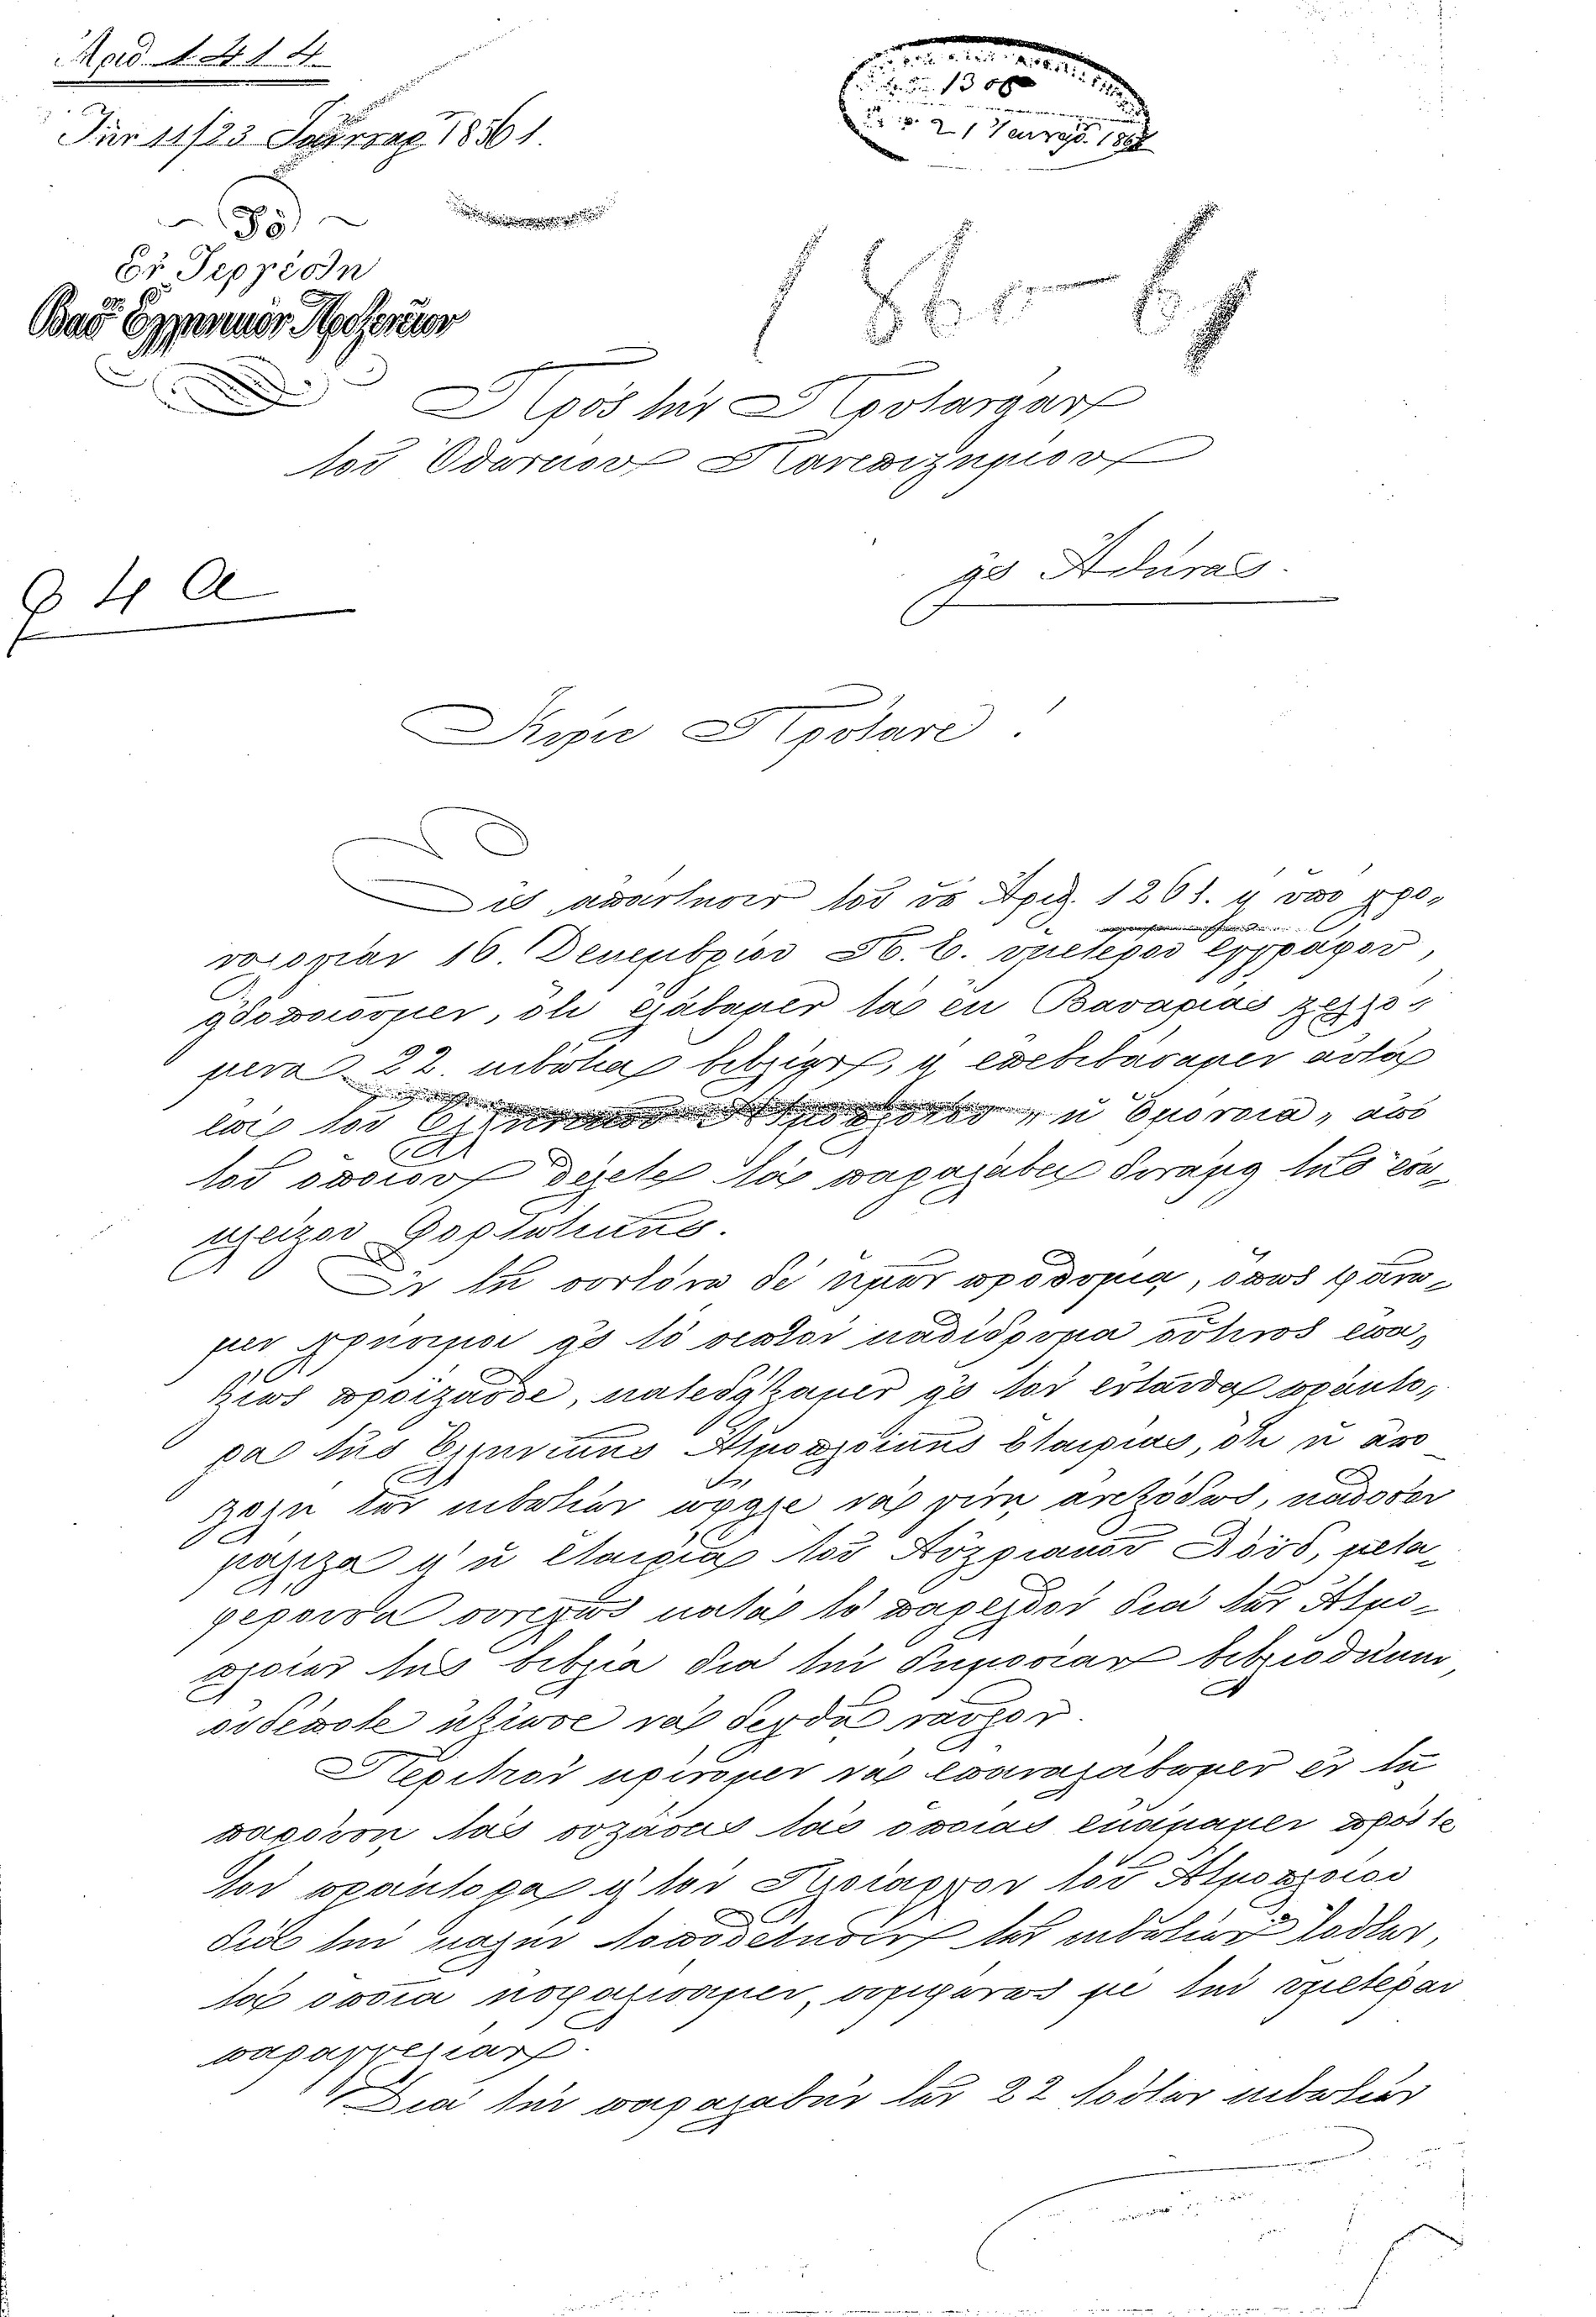 Ἀριθ. 1414
Τὴν 11/23 Ἰανουαρ. 1861.
Ἐν Τεργέστῃ
Βασ. Ἑλληνικὸν Προξενεῖον
1308
21 Ἰανουαρ. 1861
1860-61
Πρὸς τὴν Πρυτανείαν
τοῦ Ὀθωνείου Πανεπιστημίου
εἰς Ἀθήνας.
Κύριε Πρύτανι!
Εἰς ἀπάντησιν τοῦ ὑπ' Ἀριθ. 1261. καὶ ὑπὸ χρο-
νολογίαν 16. Δεκεμβρίου π. ἔ. ὑμετέρου ἐγγράφου,
εἰδοποιοῦμεν, ὅτι ἐλάβομεν τὰ ἐκ Βαυαρίας
22. κιβώτια βιβλίων, καὶ ἐπεβιβάσαμεν αὐτὰ
ἐπὶ τοῦ Ἑλληνικοῦ Ἀτμοπλοίου „ἡ Ὁμόνοια„ ἀπὸ
τοῦ ὁποίου θέλετε τὰ παραλάβει δυνάμει τῆς ἐσω-
κλείστου Φορτωτικῆς.
Ἐν τῇ συντόνῳ δὲ ἡμῶν προθυμίᾳ, ὅπως φανῶ-
μεν χρήσιμοι εἰς τὸ σεπτὸν καθίδρυμα οὗτινος ἐπα-
ξίως προΐστασθε, κατεπείσαμεν τὸν ἐνταῦθα πράκτο-
ρα τῆς Ἑλληνικῆς Ἀτμοπλοϊκῆς Ἑταιρίας, ὅτι ἡ ἀπο-
στολὴ τῶν κιβωτίων ὤφειλε νὰ γίνῃ ἀνεξόδως, καθόσον
μάλιστα καὶ ἡ ἑταιρία τοῦ Αὐστριακοῦ Λόϋδ, μετα-
φέρουσα συνεχῶς κατὰ τὸ παρελθὸν διὰ τῶν Ἀτμο-
πλοίων της βιβλία διὰ τὴν δημοσίαν βιβλιοθήκην,
οὐδέποτε ἠξίωσε νὰ δεχθῇ ναῦλον.
Περιττὸν κρίνομεν νὰ ἐπαναλάβωμεν ἐν τῇ
παρούσῃ τὰς συστάσεις τὰς ὁποίας ἐκάμαμεν πρός τε
τὸν πράκτορα καὶ τὸν Πλοίαρχον τοῦ Ἀτμοπλοίου
διὰ τὴν καλὴν τοποθέτησιν τῶν κιβωτίων τούτων,
τὰ ὁποῖα ἠσφαλίσαμεν, συμφώνως μὲ τὴν ὑμετέραν
παραγγελίαν.
Διὰ τὴν παραλαβὴν τῶν 22 τούτων κιβωτίων